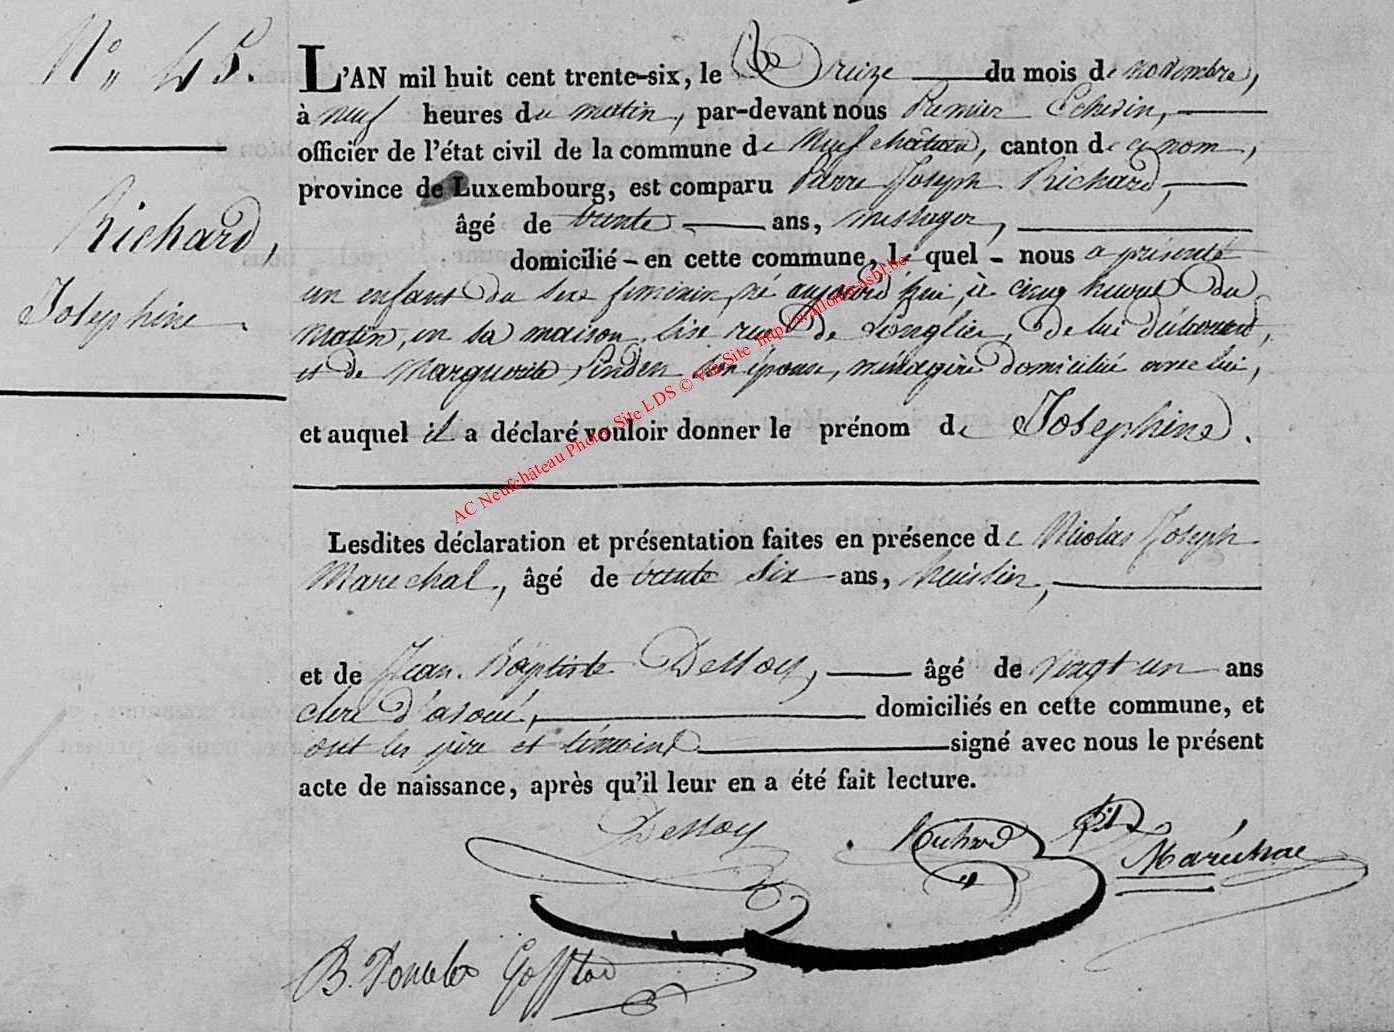 N° 45.
L'AN mil huit cent trente-six, le treize du mois de novembre,
à neuf heures du matin, par-devant nous Premier Echevin,
officier de l'état civil de la commune de Neufchâteau, canton de ce nom,
province de Luxembourg, est comparu Pierre Joseph Richard,
Richard,
Josephine
âgé de trente ans, messager,
domicilié en cette commune, le quel nous a présenté
un enfant du sexe feminin, né aujourd'hui, à cinq heures du
matin, en sa maison, sise rue de Longlier, de lui déclarant,
et de Marguerite Linden son épouse, ménagère domiciliée avec lui,
et auquel il a déclaré vouloir donner le prénom de Josephine.
AC Neufchâteau Photos Site LDS © Via Site http://wallonia-asbl.be
Lesdites déclaration et présentation faites en présence de Nicolas Joseph
Marechal, âgé de trente six ans, huissier,
et de Jean Baptiste Dessoy, âgé de vingt un ans
clerc d'avoué, domiciliés en cette commune, et
ont les père et témoins signé avec nous le présent
acte de naissance, après qu'il leur en a été fait lecture.
Dessoy Richard Maréchal
B.